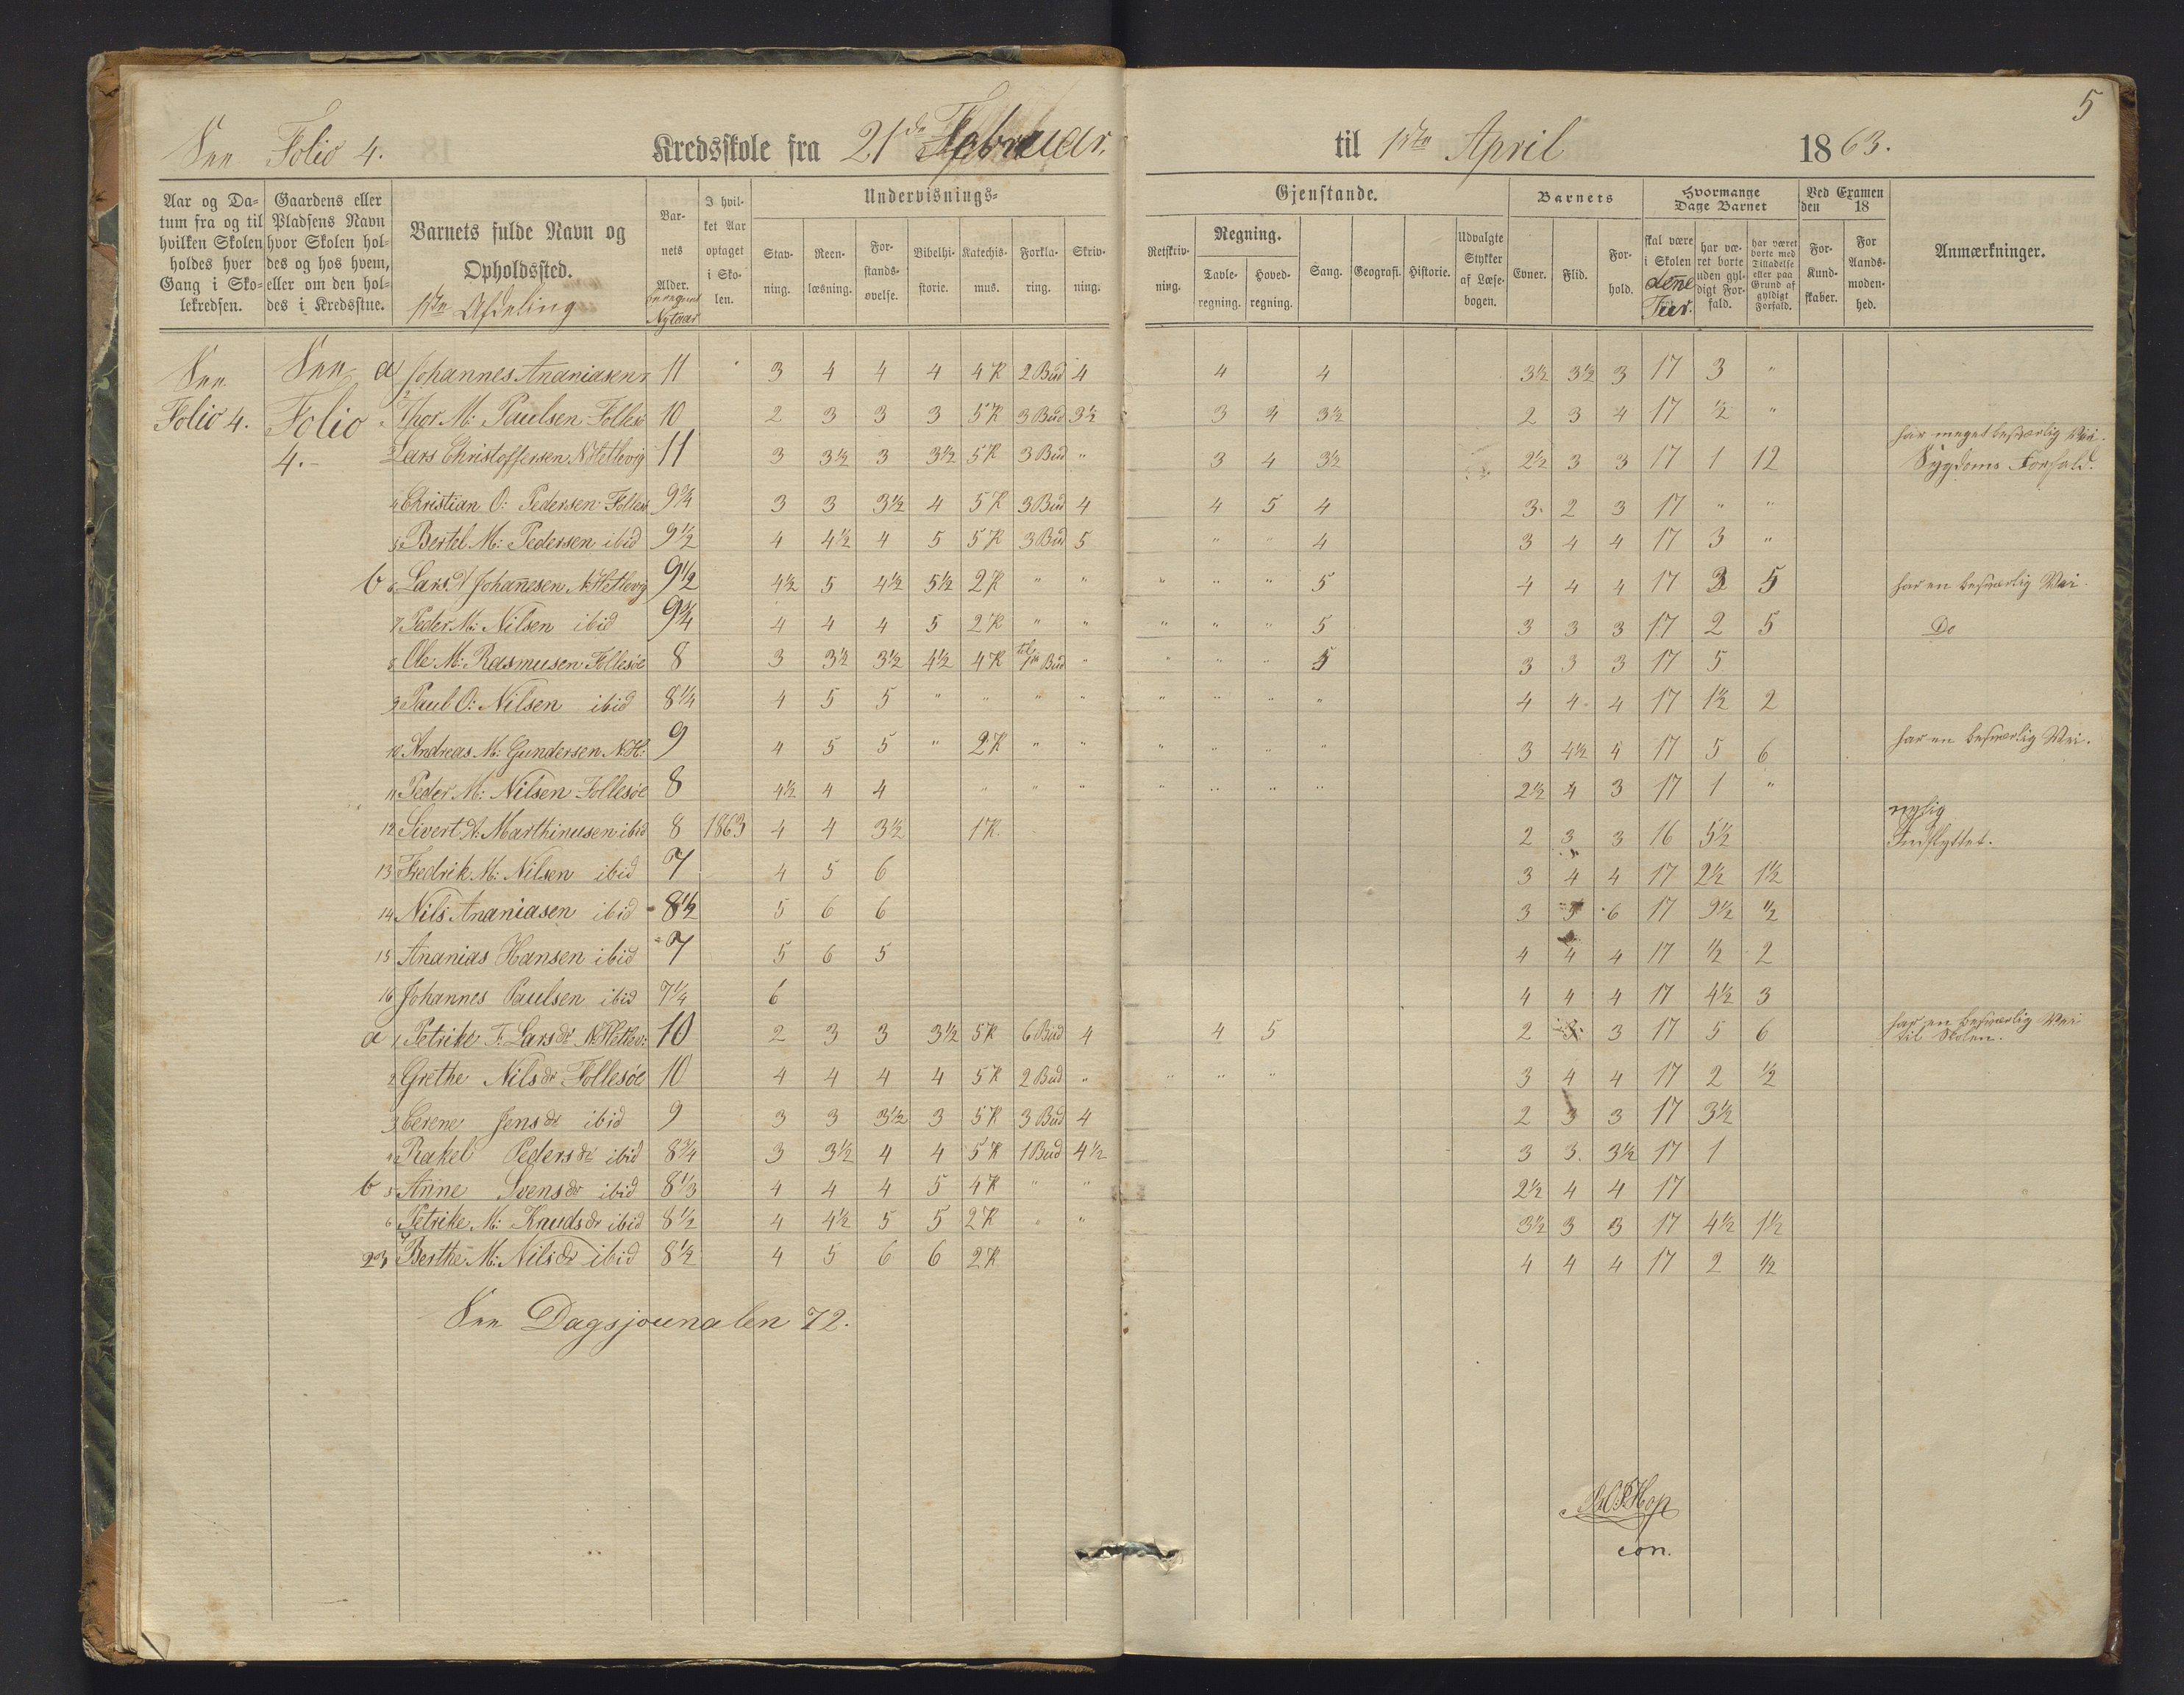 See Folio 4. Kredsskole fra 21de Februar. til 1ste April 1863. 5
Aar og Da-tum fra og til hvilken Skolen holdes hver Gang i Sko-lekredsen. Gaardens eller Pladsens Navn hvor Skolen hol-des og hos hvem, eller om den hol-des i Kredsstue. Barnets fulde Navn og Opholdssted. 1ste Afdeling Bar-nets Alder. Nytaar I hvil-ket Aar optaget i Sko-len. Undervisnings- Gjenstande. Barnets Hvormange Dage Barnet Ved Examen den 18 Anmærkninger.
Stav-ning. Reen-læsning. For-stands-øvelse. Bibelhi-storie. Katechis-mus. Forkla-ring. Skriv-ning. Retskriv-ning. Regning. Tavle-regning. Hoved-regning. Sang. Geografi. Historie. Udvalgte Stykker af Læse-bogen. Evner. Flid. For-hold. skal være i Skolen denne har væ-ret borte uden gyl-digt For-fald. har været borte med Tilladelse eller paa Grund af gyldigt Forfald. For-Kund-skaber. For Aands-moden-hed.
See See a Johannes Ananiasen 11 3 4 4 4 4 K 2 Bud 4 4 4 3½ 3½ 3 17 3 "
Folio 4. Folio 2 Thor M: Paulsen Follesø 10 2 3 3 3 5 K 3 Bud 3½ 3 4 3½ 2 3 4 17 ½ "
4.- 3 Lars Christoffersen N. Hetlevig 11 3 3½ 3 3½ 5 K 3 Bud " 3 4 3½ 2½ 3 3 17 1 12 har meget besværlig Vei. Sygdoms Forfald.
4 Christian O: Pedersen Follesø 9¾ 3 3 3½ 4 5 K 3 Bud 4 4 5 4 3 2 3 17 " "
5 Bertel M: Pedersen ibid 9½ 4 4½ 4 5 5 K 3 Bud 5 " " 4 3 4 4 17 3 "
b 6 Lars A Johannesen N. Hetlevig 9½ 4½ 5 4½ 5½ 2 K " " " " " 5 4 4 4 17 3 5 har en besværlig Vei.
7 Peder M: Nilsen ibid 9¾ 4 4 4 5 2 K " " " " " 5 3 3 3 17 2 5 Do
8 Ole M: Rasmusen Follesøe 8 3 3½ 3½ 4½ 4 K til 1ste Bud " " " " 5 3 3 3 17 5
9 Paul O: Nilsen ibid 8¼ 4 5 5 " " " " " " " " 4 4 4 17 1½ 2
10 Andreas M: Gundersen N. H: 9 4 5 5 " 2 K " " " " " " 3 4½ 4 17 5 6 har en besværlig Vei.
11 Peder M: Nilsen Follesøe 8 4½ 4 4 " " " " " " " 2½ 4 3 17 1 "
12 Sivert A: Marthinusen ibid 8 1863 4 4 3½ 1 K. 2 3 3 16 5½ nylig Indflyttet.
13 Fredrik M: Nilsen ibid 7 4 5 6 3 4 4 17 2½ 1½
14 Nils Ananiasen ibid 8½ 5 6 6 3 5 6 17 9½ ½
15 Ananias Hansen ibid 7 5 6 5 4 4 4 17 ½ 2
16 Johannes Paulsen ibid 7¼ 6 4 4 4 17 4½ 3
a 1 Petrike T. Larsdr N. Hetlev: 10 2 3 3 3½ 5 K 6 Bud 4 4 5 2 3 3 17 5 6 har en besværlig Vei til Skolen.
2 Grethe Nilsdr Follesøe 10 4 4 4 4 5 K 2 Bud " " " " 3 4 4 17 2 ½
3 Cerene Jensdr ibid 9 3 3 3½ 3 5 K 3 Bud 4 2 3 3 17 3½
4 Rakel Pedersdr ibid 8¾ 3 3½ 4 4 5 K 1 Bud 4½ 3 3. 3½ 17 1
b 5 Anne Svensdr ibid 8⅓ 4 4 4 5 4 K " " 2½ 4 4 17
6 Petrike M: Knudsdr ibid 8½ 4 4½ 5 5 2 K " " 3½ 3 3 17 4½ 1½
23 7 Berthe M: Nilsdr ibid 8½ 4 5 6 6 2 K 4 4 4 17 2 ½
See Dagsjournalen 72.
Hop
con.